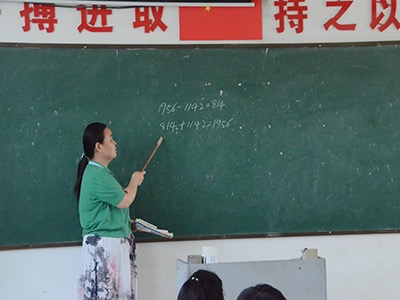 搏进取 持之以
1956-1142=814
814+1142=1956